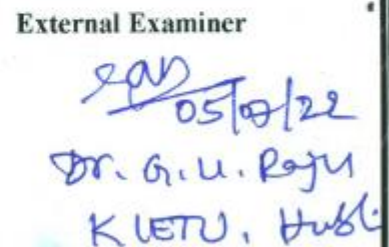 External Examiner
05/07/22
Dr. G. U. Raju
KLETU, Hubli